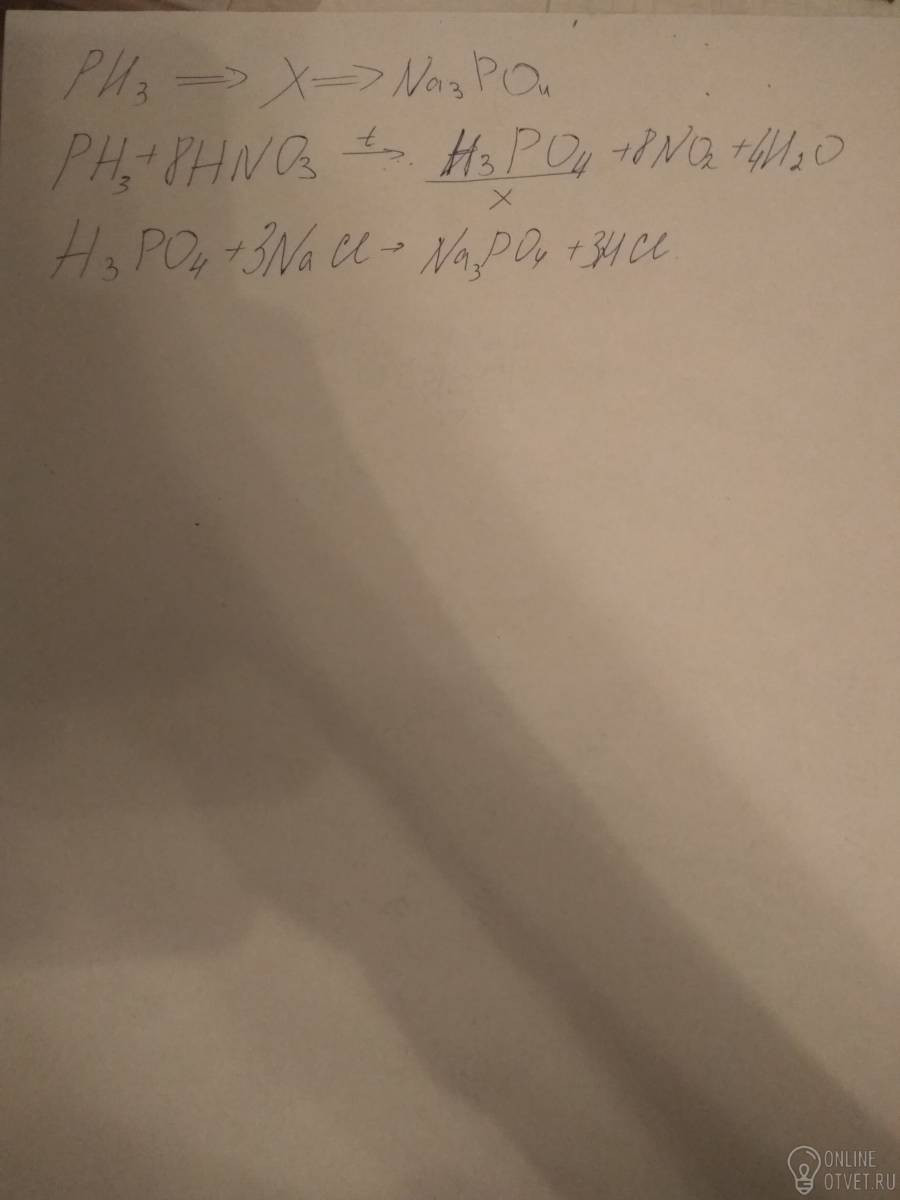 PH₃ ⟹ X ⟹ Na₃PO₄
PH₃ + 8HNO₃ →t H₃PO₄ + 8NO₂ + 4H₂O
X
H₃PO₄ + 3NaCl → Na₃PO₄ + 3HCl
ONLINE
OTVET.RU